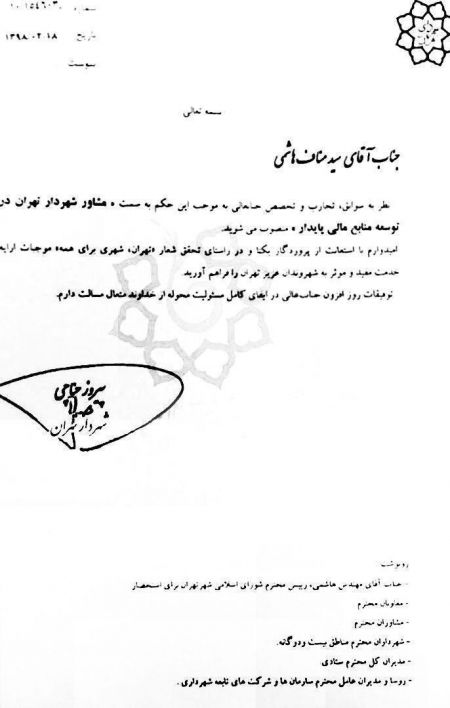 شماره
تاریخ ۱۳۹۸/۰۲/۱۸
پیوست
بسمه تعالی
جناب آقای سید مناف هاشمی
نظر به سوابق، تجارب و تخصص جنابعالی به موجب این حکم به سمت « مشاور شهردار تهران در
توسعه منابع مالی پایدار » منصوب می شوید.
امیدوارم با استعانت از پروردگار یکتا و در راستای تحقق شعار «تهران، شهری برای همه» موجبات ارایه
خدمت مفید و موثر به شهروندان عزیز تهران را فراهم آورید.
توفیقات روز افزون جنابعالی در ایفای کامل مسئولیت محوله از خداوند متعال مسالت دارم.
پیروز حناچی
شهردار تهران
رونوشت
- جناب آقای مهندس هاشمی، رییس محترم شورای اسلامی شهر تهران برای استحضار
- معاونان محترم
- مشاوران محترم
- شهرداران محترم مناطق بیست ودوگانه.
- مدیران کل محترم ستادی
- روسا و مدیران عامل محترم سازمان ها و شرکت های تابعه شهرداری .